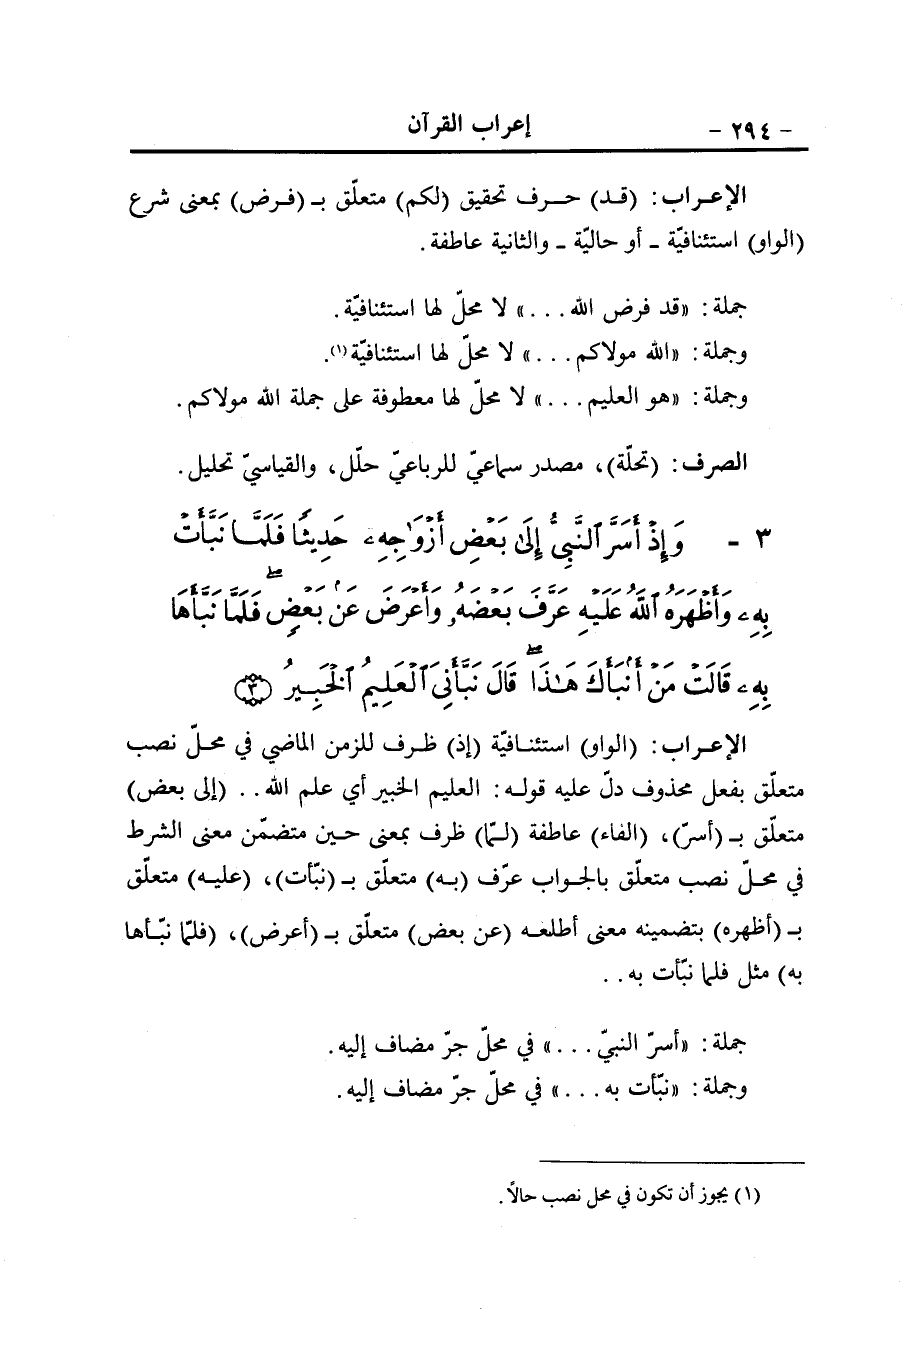 - ٢٩٤ - إعراب القرآن
الإعـراب: (قـد) حـرف تحقيق (لكم) متعلّق بـ(فـرض) بمعنى شرع
(الواو) استئنافيّة ـ أو حاليّة ـ والثانية عاطفة.
جملة: «قد فرض الله...» لا محلّ لها استئنافيّة.
وجملة: «الله مولاكم...» لا محلّ لها استئنافيّة(١).
وجملة: «هو العليم...» لا محلّ لها معطوفة على جملة الله مولاكم.
الصرف: (تحلّة)، مصدر سماعيّ للرباعيّ حلّل، والقياسيّ تحليل.
٣ - وَإِذْ أَسَرَّ ٱلنَّبِيُّ إِلَىٰ بَعْضِ أَزْوَٰجِهِۦ حَدِيثًا فَلَمَّا نَبَّأَتْ
بِهِۦ وَأَظْهَرَهُ ٱللَّهُ عَلَيْهِ عَرَّفَ بَعْضَهُۥ وَأَعْرَضَ عَنۢ بَعْضٍۖ فَلَمَّا نَبَّأَهَا
بِهِۦ قَالَتْ مَنْ أَنۢبَأَكَ هَٰذَاۖ قَالَ نَبَّأَنِيَ ٱلْعَلِيمُ ٱلْخَبِيرُ ﴿٣﴾
الإعـراب: (الواو) استئنـافيّة (إذ) ظـرف للزمن الماضي في محـلّ نصب
متعلّق بفعل محذوف دلّ عليه قولـه: العليم الخبير أي علم الله.. (إلى بعض)
متعلّق بـ(أسرّ)، (الفاء) عاطفة (لـمّا) ظرف بمعنى حـين متضمّن معنى الشرط
في محـلّ نصب متعلّق بالجـواب عرّف (بـه) متعلّق بـ(نبّأت)، (عليـه) متعلّق
بـ(أظهره) بتضمينه معنى أطلعـه (عن بعض) متعلّق بـ(أعرض)، (فلمّا نبّـأها
به) مثل فلما نبّأت به..
جملة: «أسرّ النبيّ...» في محلّ جرّ مضاف إليه.
وجملة: «نبّأت به...» في محلّ جرّ مضاف إليه.
(١) يجوز أن تكون في محل نصب حالاً.